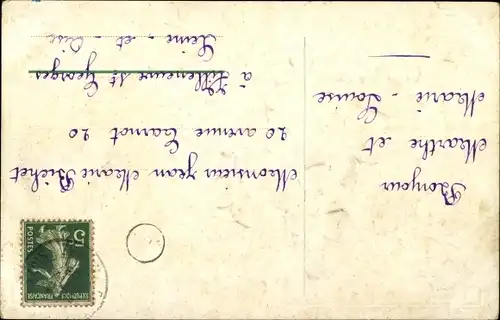 Bonjour
Marthe et
Marie-Louise
Monsieur Jean Marie Bichet
20 avenue Carnot 20
à Villeneuve St Georges
Seine-et-Oise
5
POSTES
REPUBLIQUE FRANÇAISE